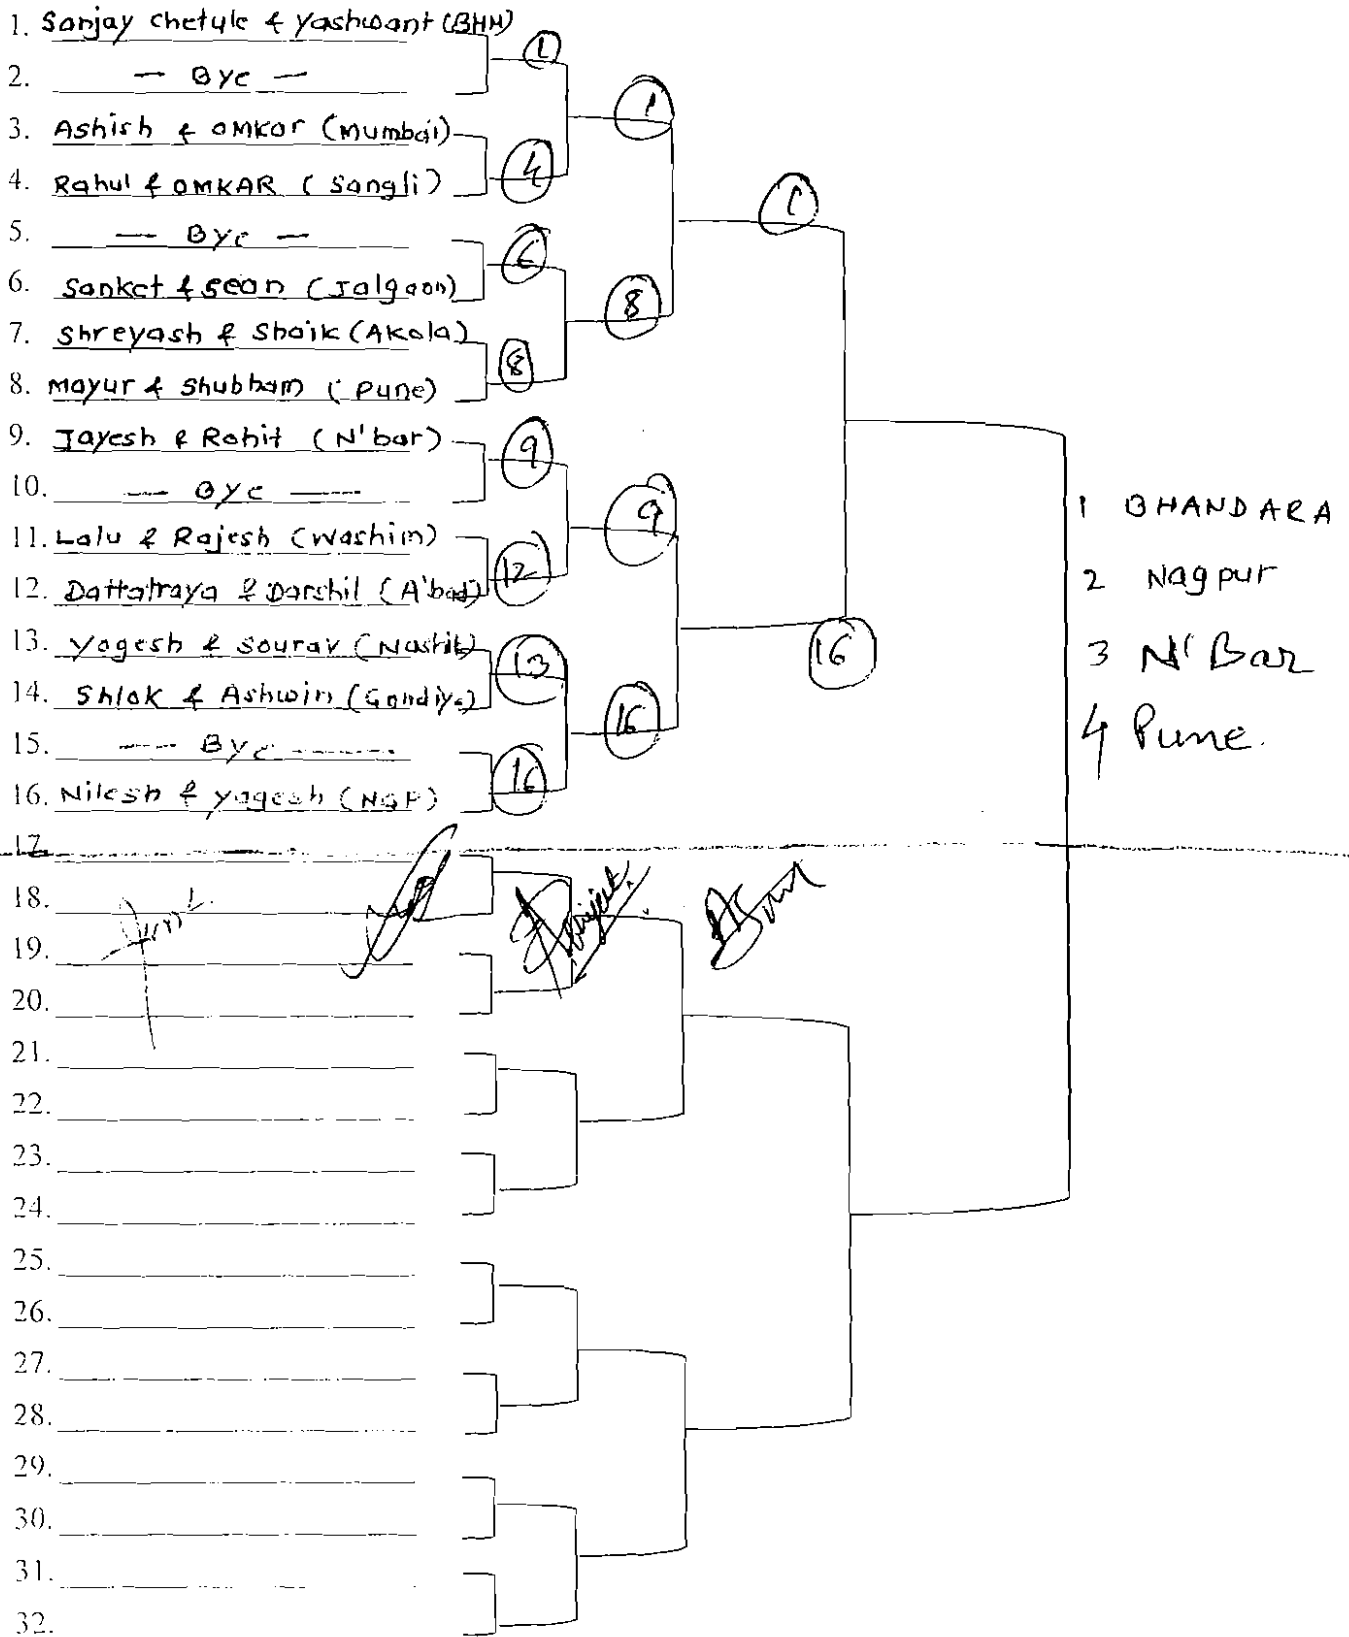 1. Sanjay Chetule & Yashwant (BHN)
2. — Bye —
3. Ashish & OMKAR (Mumbai)
4. Rahul & OMKAR (Sangli)
5. — Bye —
6. Sanket & Sean (Jalgaon)
7. Shreyash & Shaik (Akola)
8. Mayur & Shubham (Pune)
9. Jayesh & Rohit (N'bar)
10. — Bye —
11. Lalu & Rajesh (Washim)
12. Dattatraya & Darshil (A'bad)
13. Yogesh & Sourav (Nashik)
14. Shlok & Ashwin (Gondiya)
15. — Bye —
16. Nilesh & Yogesh (NGP)
17.
18.
19.
20.
21.
22.
23.
24.
25.
26.
27.
28.
29.
30.
31.
32.
1
4
6
8
9
12
13
16
1
8
9
16
1
16
1 BHANDARA
2 Nagpur
3 N'Bar
4 Pune.